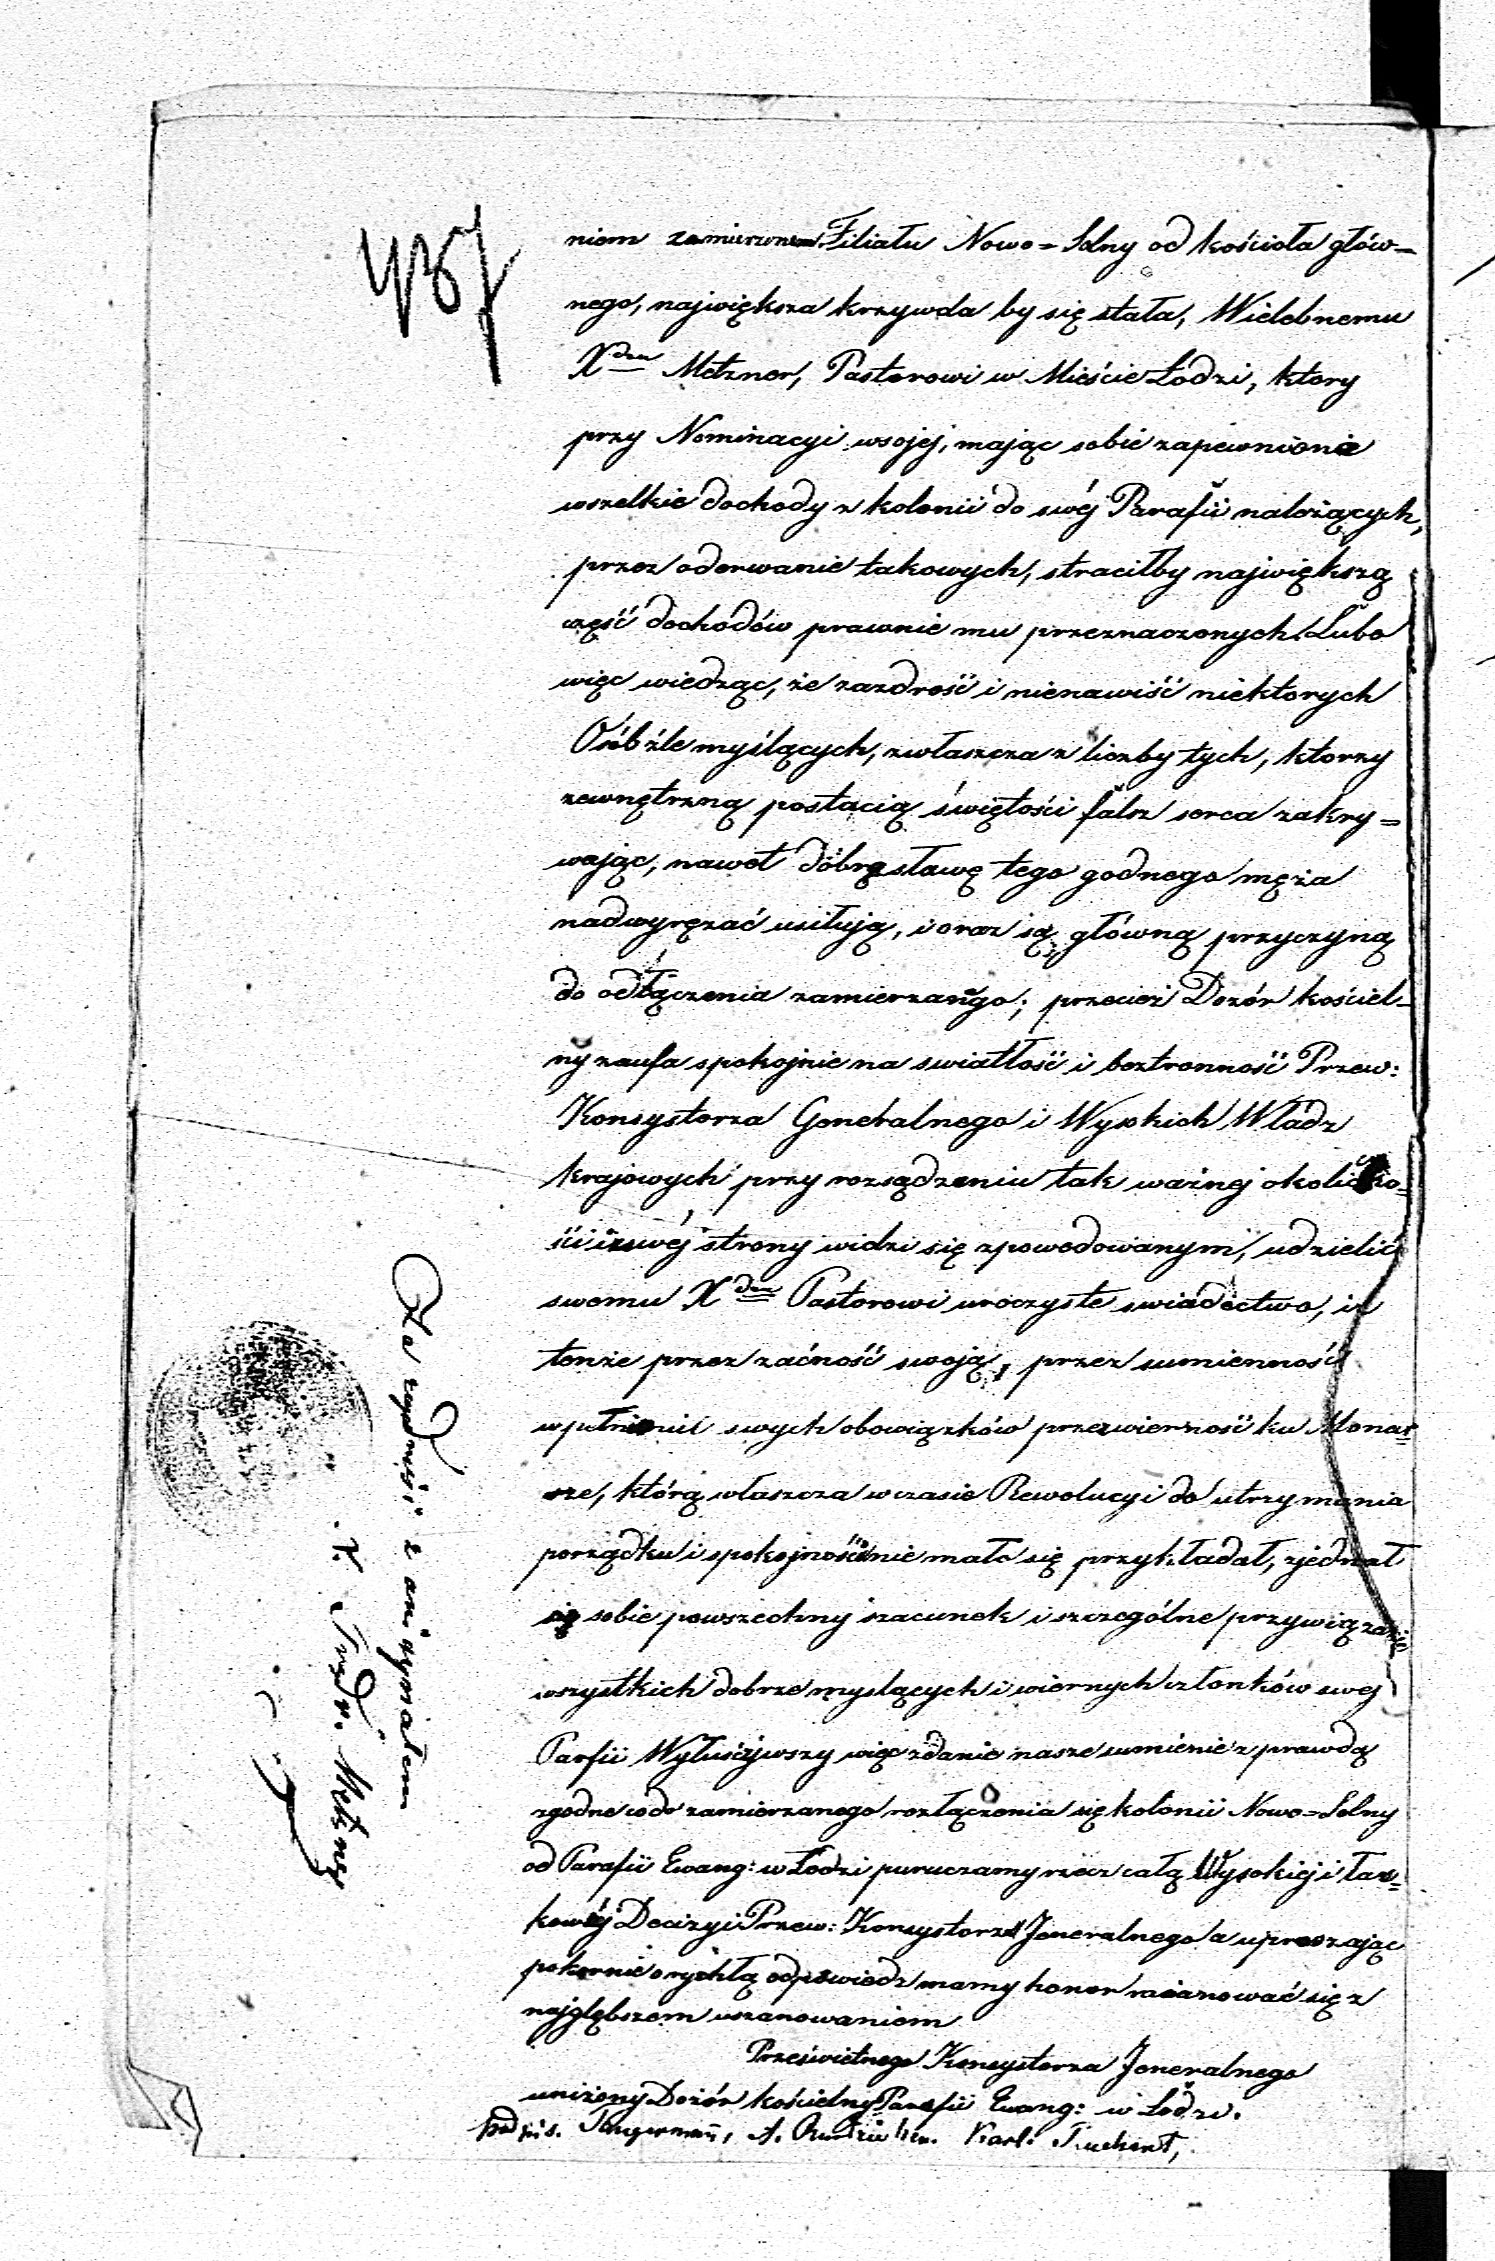 437
niem zamierzonem Filiału Nowo=Solny od kościoła głów=
nego, największa krzywda by się stała, Wielebnemu
Xdzu Metzner, Pastorowi w Mieście Łodzi, ktory
przy Nominacyi wsojej, mając sobie zapewnione
wszelkie dochody z kolonii do swéj Parafii należących,
przez oderwanie takowych, straciłby największą
część dochodów prawnie mu przeznaczonych. Lubo
więc wiedząc, że zazdrość i nienawiść niektorych
Osób źle myślących, zwłaszcza z liczby tych, ktorzy
zewnętrzną postacią świętości fałsz serca zakry=
wając, nawet dobrą sławę tego godnego męża
nadwyrężać usiłują, i oraz są główną przyczyną
do odłączenia zamierzanego; przecież Dozór kościel=
ny zaufa spokojnie na swiatłość i beztronność Przew:
Konsystorza Generalnego i Wysokich Władz
krajowych przy rozsądzeniu tak ważnej okoliczno=
ści i z swéj strony widzi się zpowodowanym, udzielić
swemu Xdzu Pastorowi uroczyste swiadectwo, iż
tenże przez zacność swoją, przez sumienność
w pełnieniu swych obowiązków przez wierność ku Monar=
sze, którą właszcza w czasie Rewolucyi do utrzymania
porządku i spokojności nie mało się przykładał, zjednał
się sobie powszechny szacunek i szczególne przywiązanie
wszystkich dobrze myslących i wiernych członków swej
Parfii Wyłuściwszy więc zdanie nasze sumienie z prawdą
zgodne co do zamierzanego rozłączenia się kolonii Nowo=Solny
od Parafii Ewang: w Łodzi puruczamy rzecz całą Wysokiej i łas=
kowéj Decizyi Przew: Konsystorza Jeneralnego a upraszając
pokornie o rychłą odpowiedz mamy honor mianować się z
najgłębszem uszanowaniem
Prześwietnego Konsystorza Jeneralnego
uniżony Dozór kościelny Parafii Ewang: w Łodzi.
podpis. Tangermann, A. Karl.
Za zgodność z oryginałem
X. Fryd. Metzner